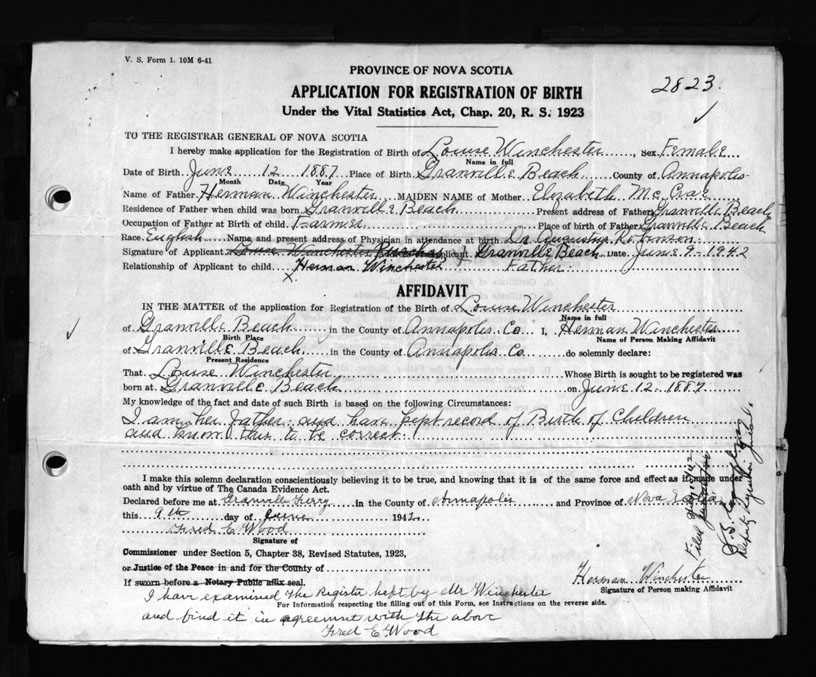 V. S. Form 1. 10M 6-41
PROVINCE OF NOVA SCOTIA
2823.
APPLICATION FOR REGISTRATION OF BIRTH
Under the Vital Statistics Act, Chap. 20, R. S. 1923
TO THE REGISTRAR GENERAL OF NOVA SCOTIA
I hereby make application for the Registration of Birth of Louise Winchester, Sex Female
Name in full
Date of Birth June 12 1887 Place of Birth Granville Beach County of Annapolis
Month Date Year
Name of Father Herman Winchester MAIDEN NAME of Mother Elizabeth McCrae
Residence of Father when child was born Granville Beach Present address of Father Granville Beach
Occupation of Father at Birth of child Farmer Place of birth of Father Granville Beach
Race English Name and present address of Physician in attendance at birth Dr Augustus Robinson
Signature of Applicant Louise Winchester Granville Beach Date June 9-1942
Relationship of Applicant to child Herman Winchester Father
AFFIDAVIT
IN THE MATTER of the application for Registration of the Birth of Louise Winchester
Name in full
of Granville Beach in the County of Annapolis Co I, Herman Winchester
Birth Place Name of Person Making Affidavit
of Granville Beach in the County of Annapolis Co. do solemnly declare:
Present Residence
That Louise Winchester Whose Birth is sought to be registered was
born at Granville Beach on June 12 1887
My knowledge of the fact and date of such Birth is based on the following Circumstances:
I am her father and have kept record of Birth of Children
and know this to be correct
I make this solemn declaration conscientiously believing it to be true, and knowing that it is of the same force and effect as if made under
oath and by virtue of The Canada Evidence Act.
Declared before me at Granville Ferry in the County of Annapolis and Province of Nova Scotia
this 9th day of June 1942
Fred E Wood
Signature of
Commissioner under Section 5, Chapter 38, Revised Statutes, 1923,
or Justice of the Peace in and for the County of
If sworn before a Notary Public affix seal.
Herman Winchester
Signature of Person making Affidavit
I have examined the Register kept by Mr Winchester
For Information respecting the filling out of this Form, see Instructions on the reverse side.
and find it in agreement with the above
Fred E Wood